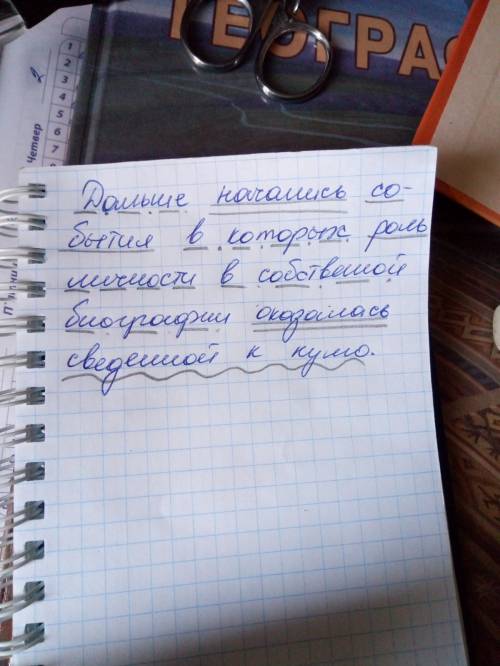 ГЕОГРА
Четвер
2
1
2
3
4
5
6
7
Дальше начались со-
бытия в которых роль
личности в собственой
биографии оказалась
сведенной к нулю.